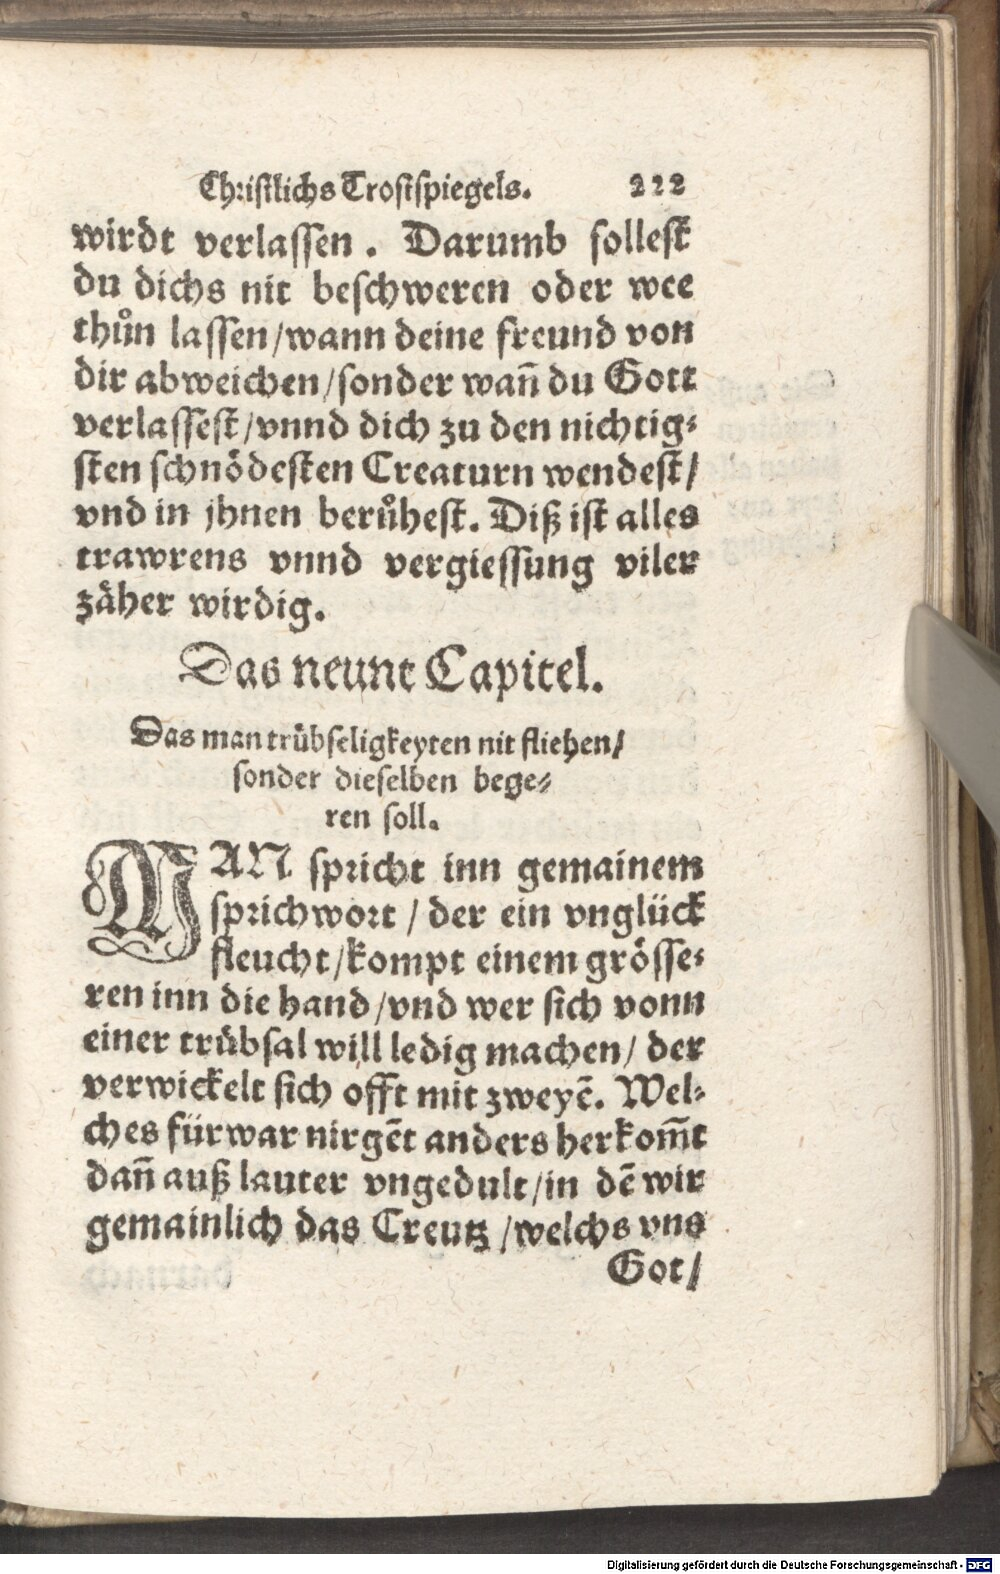 Christlichs Trostspiegels. 222
wirdt verlassen. Darumb sollest
du dichs nit beschweren oder wee
thůn lassen/wann deine freund von
dir abweichen/sonder wañ du Gott
verlassest/vnnd dich zu den nichtig⸗
sten schnödesten Creaturn wendest/
vnd in jhnen berůhest. Diß ist alles
trawrens vnnd vergiessung viler
zäher wirdig.
Das neunt Capitel.
Das man trübseligkeyten nit fliehen/
sonder dieselben bege⸗
ren soll.
MAN spricht inn gemainem
sprichwort / der ein vnglück
fleucht/kompt einem grösse⸗
ren inn die hand/vnd wer sich vonn
einer trübsal will ledig machen/ der
verwickelt sich offt mit zweyẽ. Wel⸗
ches fürwar nirgẽt anders herkom̃t
dañ auß lauter vngedult/in dẽ wir
gemainlich das Creutz /welchs vns
Got/
Digitalisierung gefördert durch die Deutsche Forschungsgemeinschaft - DFG